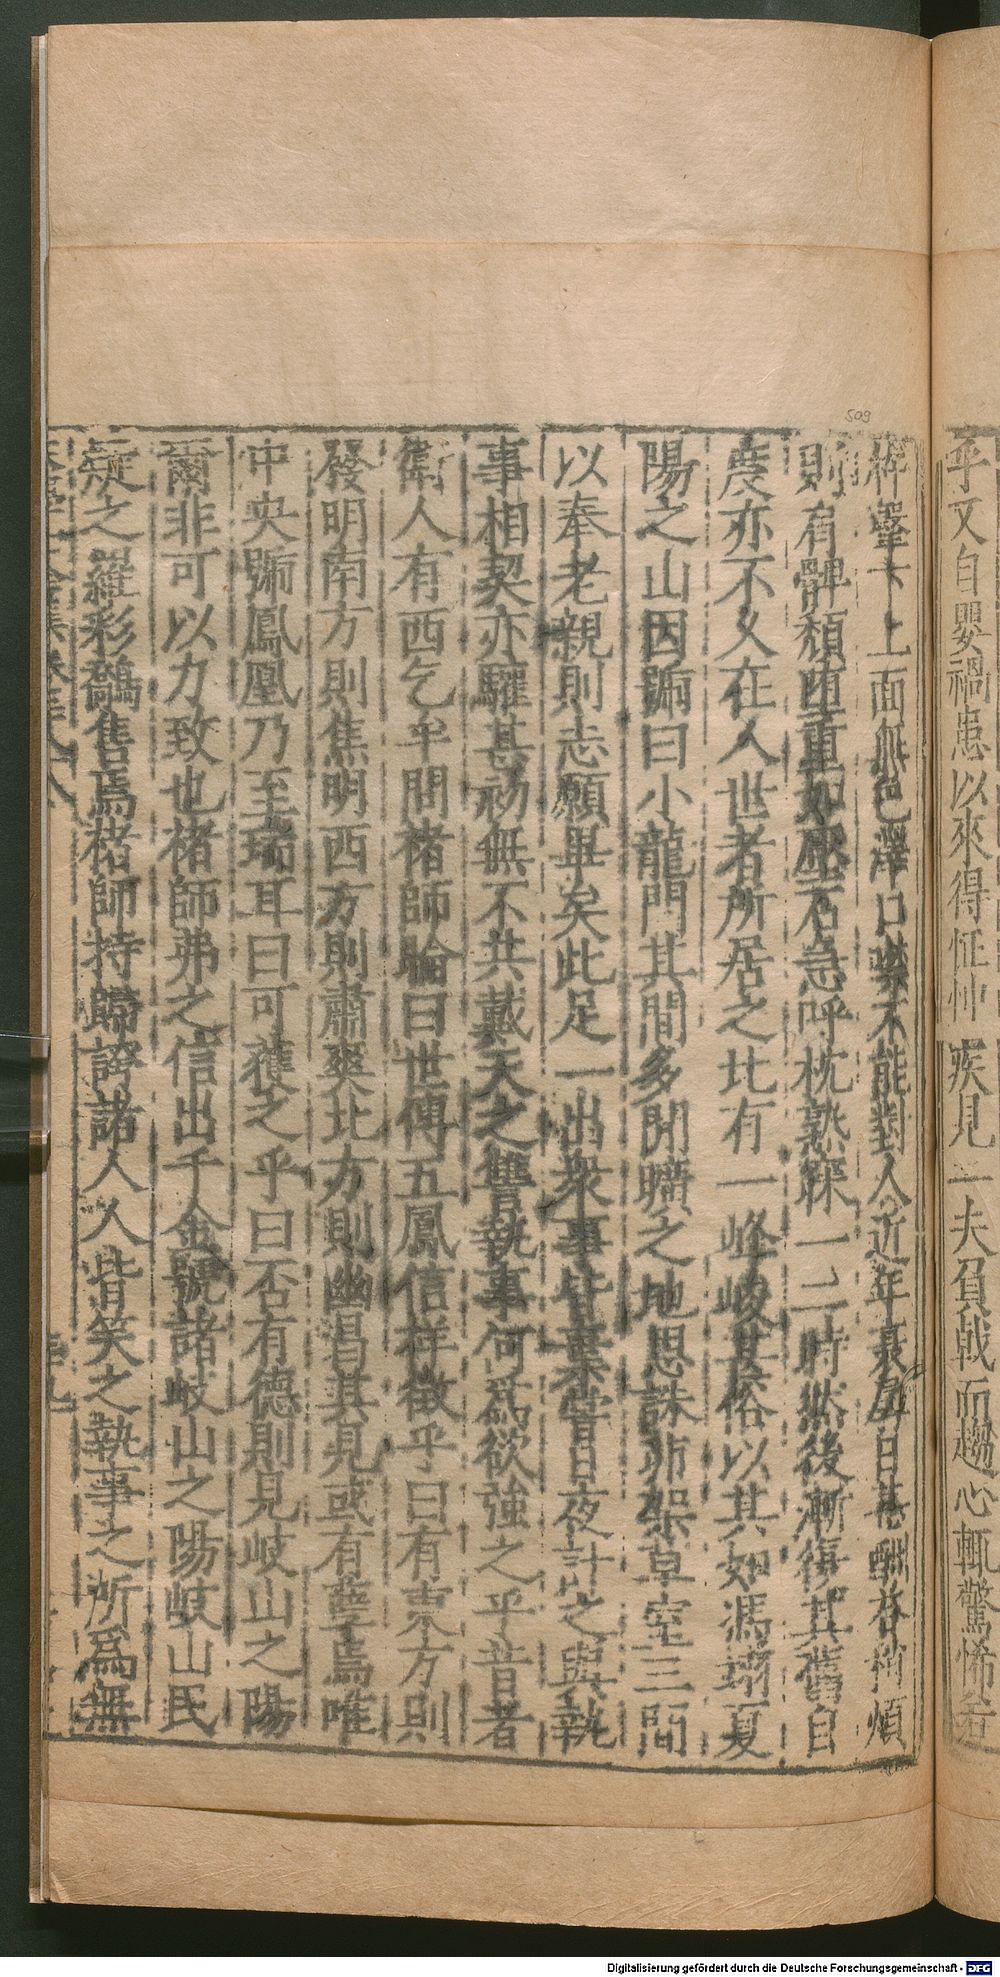 乎又自嬰禍患以來得怔忡疾見一夫負戟而趨心輒驚悸若
上面無色澤口噤不能對人近年衰孱日甚酬荅稍煩
則有髀頹墮重如壓石急呼枕熟寐一二時然後漸復其舊自
度亦不久在人世者所居之北有一峰峻甚俗以其如馮翊夏
陽之山因號曰小龍門其間多閒曠之地思誅茆架草室三間
以奉老親則志願畢矣此足一出衆事皆棄嘗日夜計之與執
事相契亦驩甚初無不共戴天之讐執事何爲欲強之乎昔者
衛人有西乞乎問褚師踚曰世傳五鳳信祥徵乎曰有東方則
發明南方則焦明西方則肅爽北方則幽昌其見或有孽焉唯
中央號鳳凰乃至瑞耳曰可獲之乎曰否有德則見岐山之陽
爾非可以力致也褚師弗之信出千金號諸岐山之陽岐山民
羅彩鷮售焉褚師持歸誇諸人人皆笑之執事之所爲無
509
Digitalisierung gefördert durch die Deutsche Forschungsgemeinschaft - DFG